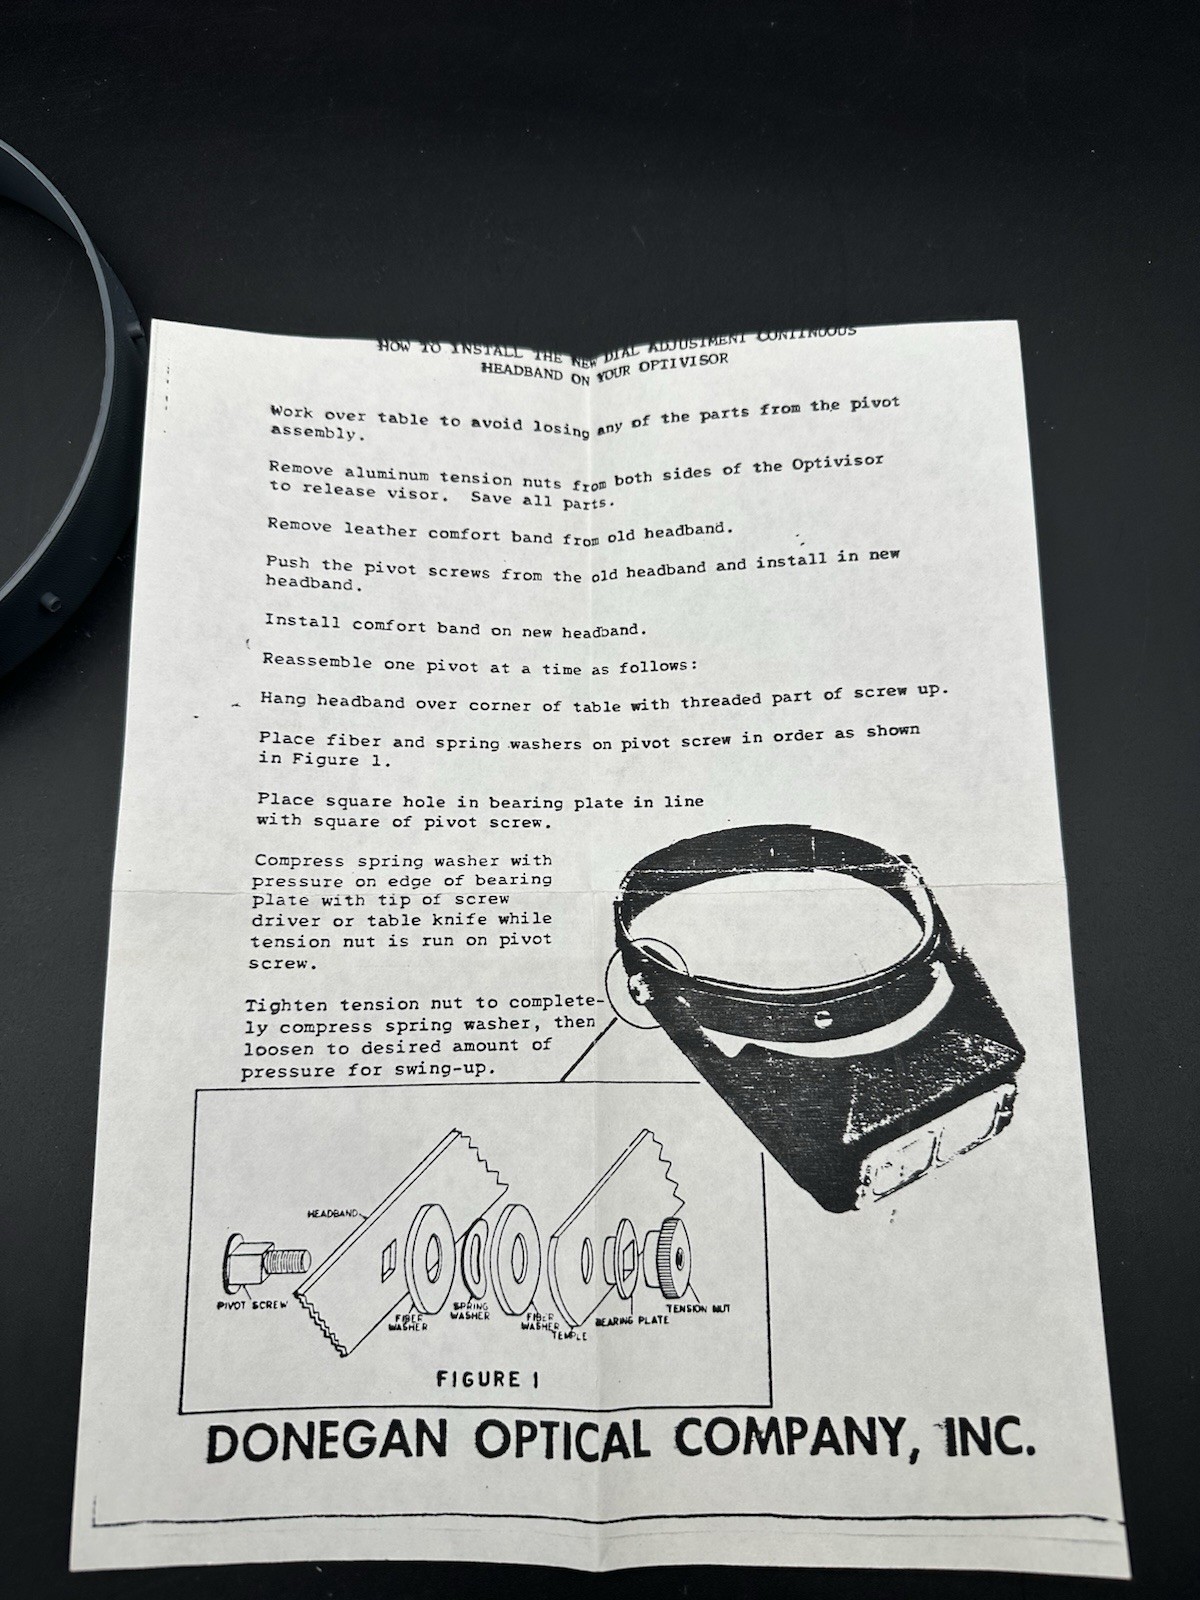 HOW TO INSTALL THE NEW DIAL ADJUSTMENT CONTINUOUS
HEADBAND ON YOUR OPTIVISOR
Work over table to avoid losing any of the parts from the pivot
assembly.
Remove aluminum tension nuts from both sides of the Optivisor
to release visor.  Save all parts.
Remove leather comfort band from old headband.
Push the pivot screws from the old headband and install in new
headband.
Install comfort band on new headband.
Reassemble one pivot at a time as follows:
Hang headband over corner of table with threaded part of screw up.
Place fiber and spring washers on pivot screw in order as shown
in Figure 1.
Place square hole in bearing plate in line
with square of pivot screw.
Compress spring washer with
pressure on edge of bearing
plate with tip of screw
driver or table knife while
tension nut is run on pivot
screw.
Tighten tension nut to complete-
ly compress spring washer, then
loosen to desired amount of
pressure for swing-up.
HEADBAND
PIVOT SCREW
FIBER
WASHER
SPRING
WASHER
FIBER
WASHER
TEMPLE
BEARING PLATE
TENSION NUT
FIGURE 1
DONEGAN OPTICAL COMPANY, INC.